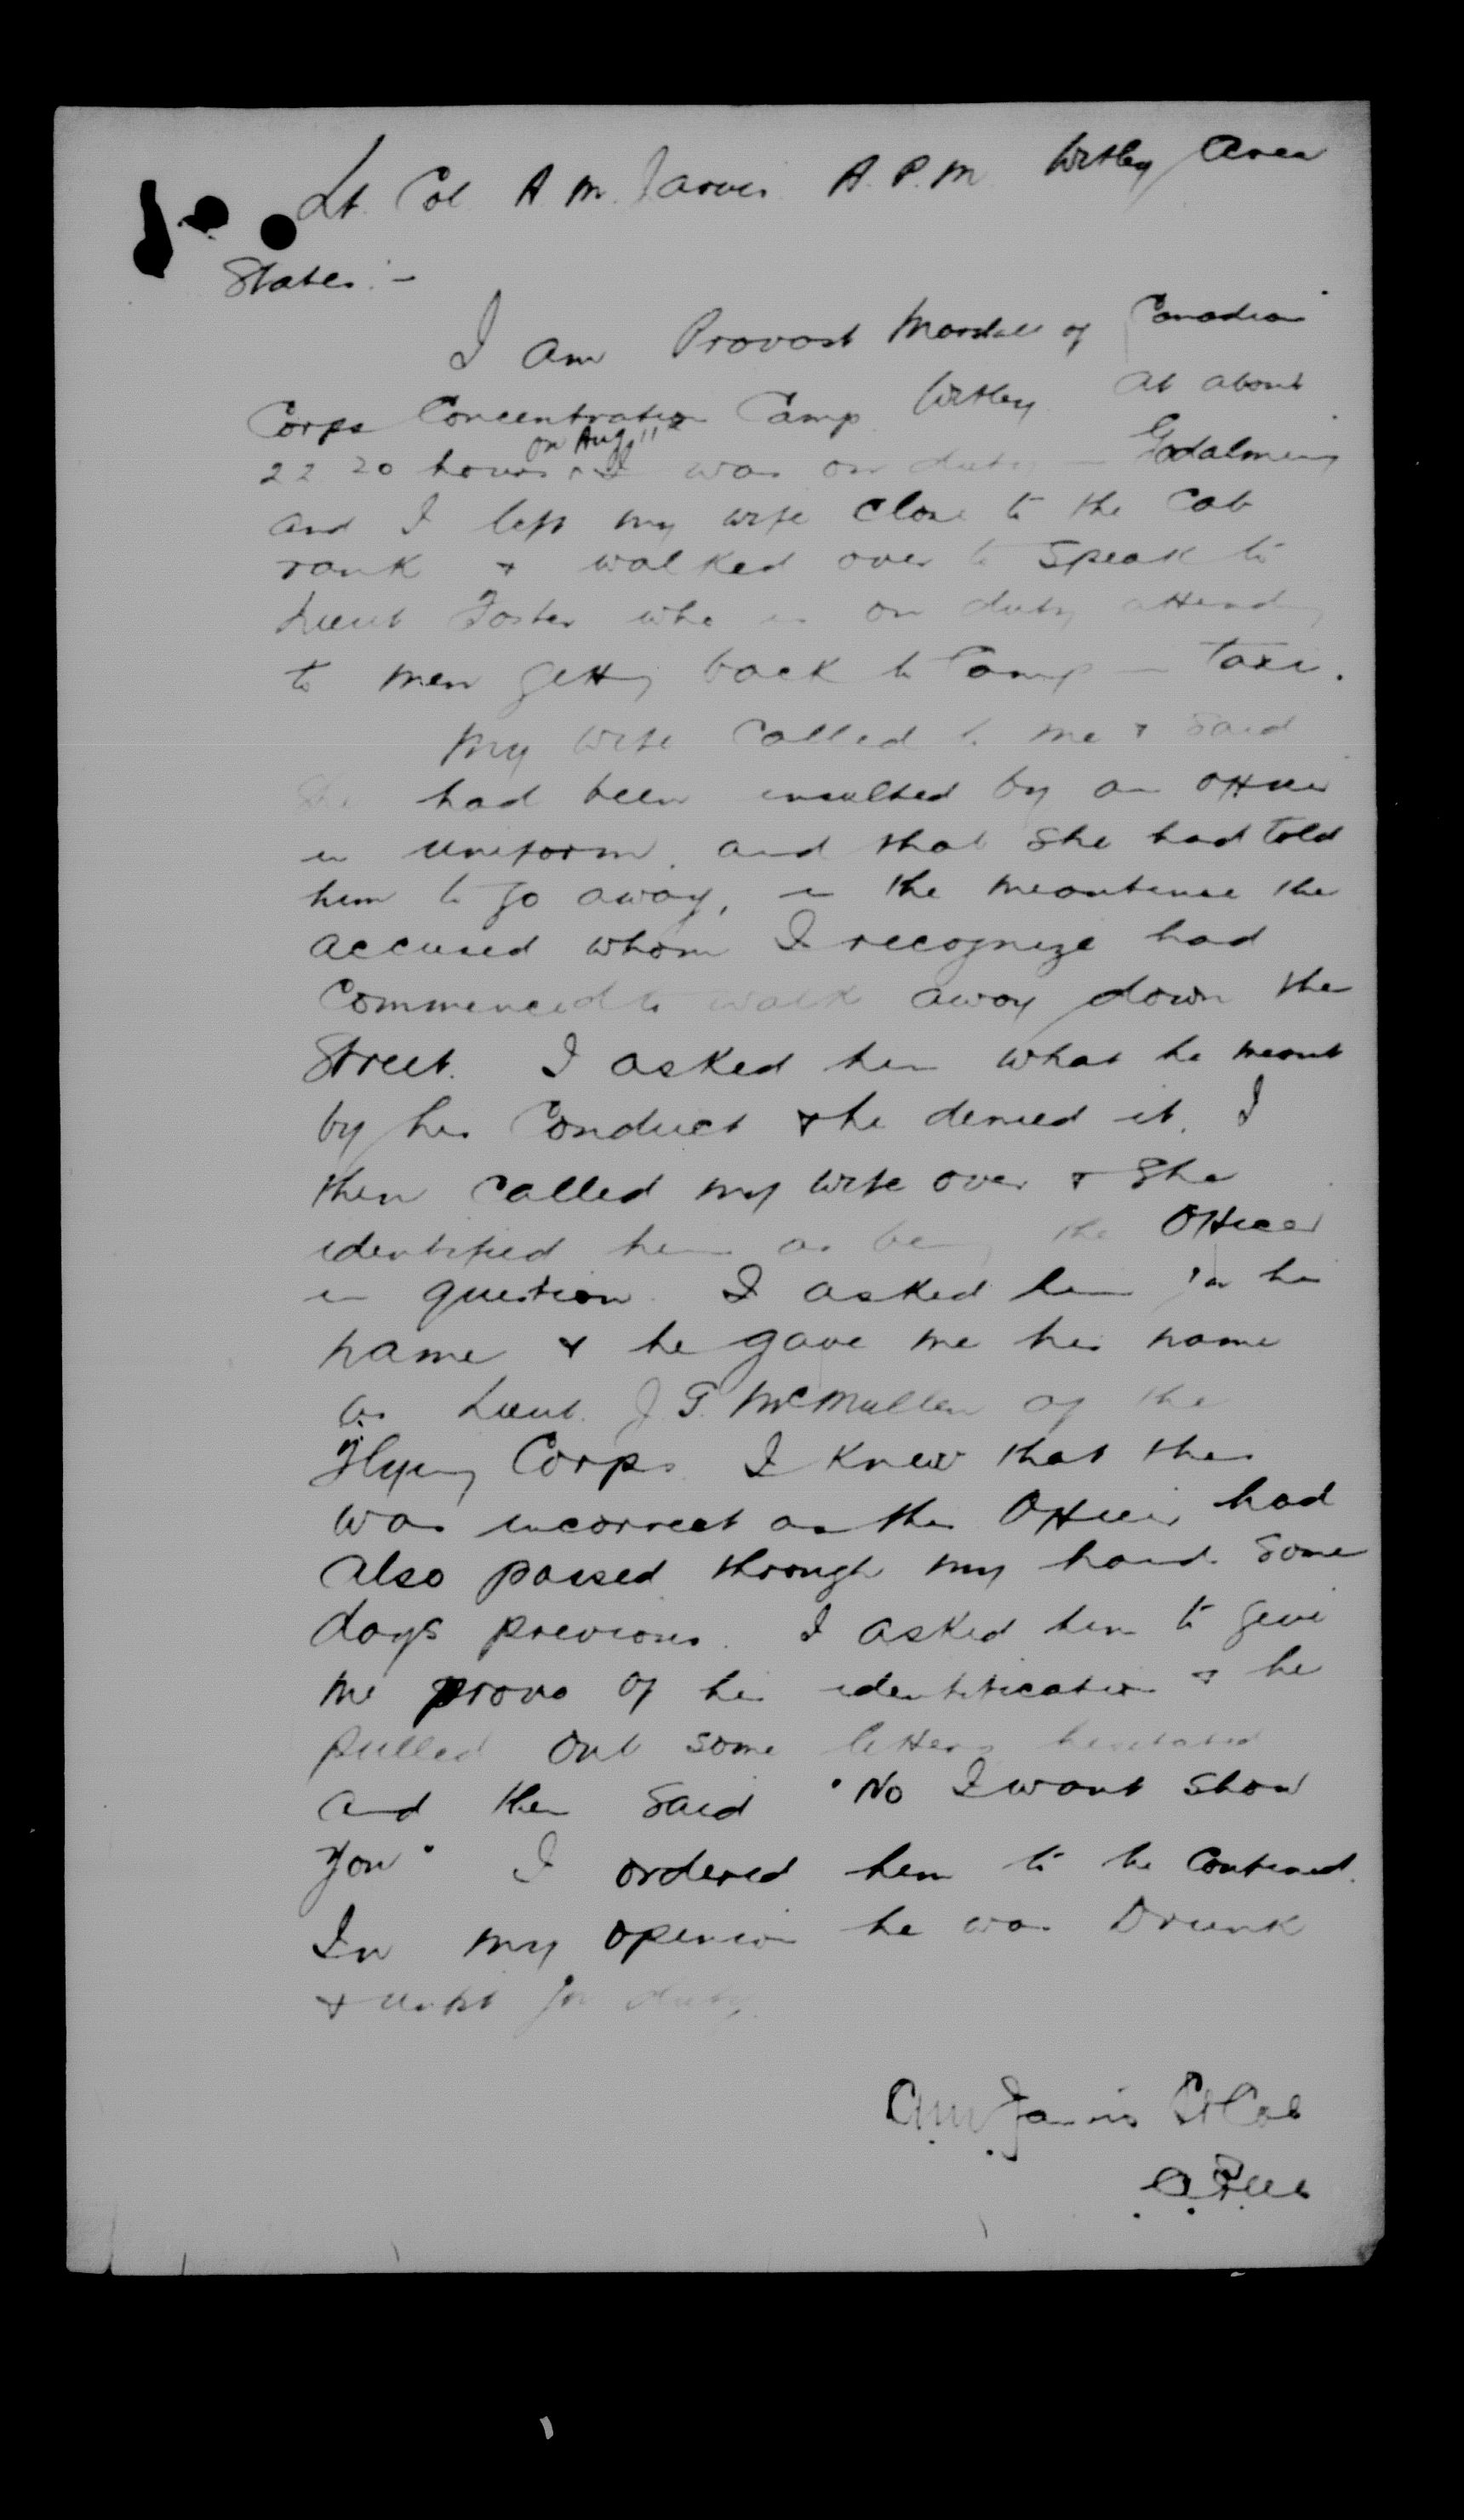 Lt. Col. A. M. Jarvis. A. P. M. Witley Area
States :-
I am Provost Marshall of Canadian
Corps Concentration Camp Witley. At about
on Aug 11th
22 20 hours I was on duty in Godalming
and I left my wife close to the cab
rank & walked over to speak to
Lieut Foster who is on duty attending
to men getting back to Camp in taxis.
My wife called to me & said
she had been insulted by an officer
in uniform, and that she had told
him to go away, in the meantime the
accused whom I recognize had
Commenced to walk away down the
Street. I asked him what he meant
by his Conduct & he denied it. I
then called my wife over & she
identified him as being the Officer
in question. I asked him for his
name & he gave me his name
as Lieut. J. T. McMullen of the
Flying Corps. I knew that this
was incorrect as the Officer had
also passed through my hands some
days previous. I asked him to give
me provo of his identification & he
pulled out some letters hesitated
and then said "No I wont show
you" I ordered him to be confined.
In my opinion he was Drunk
& unfit for duty.
A.M. Jarvis Lt Col
A.P.M.